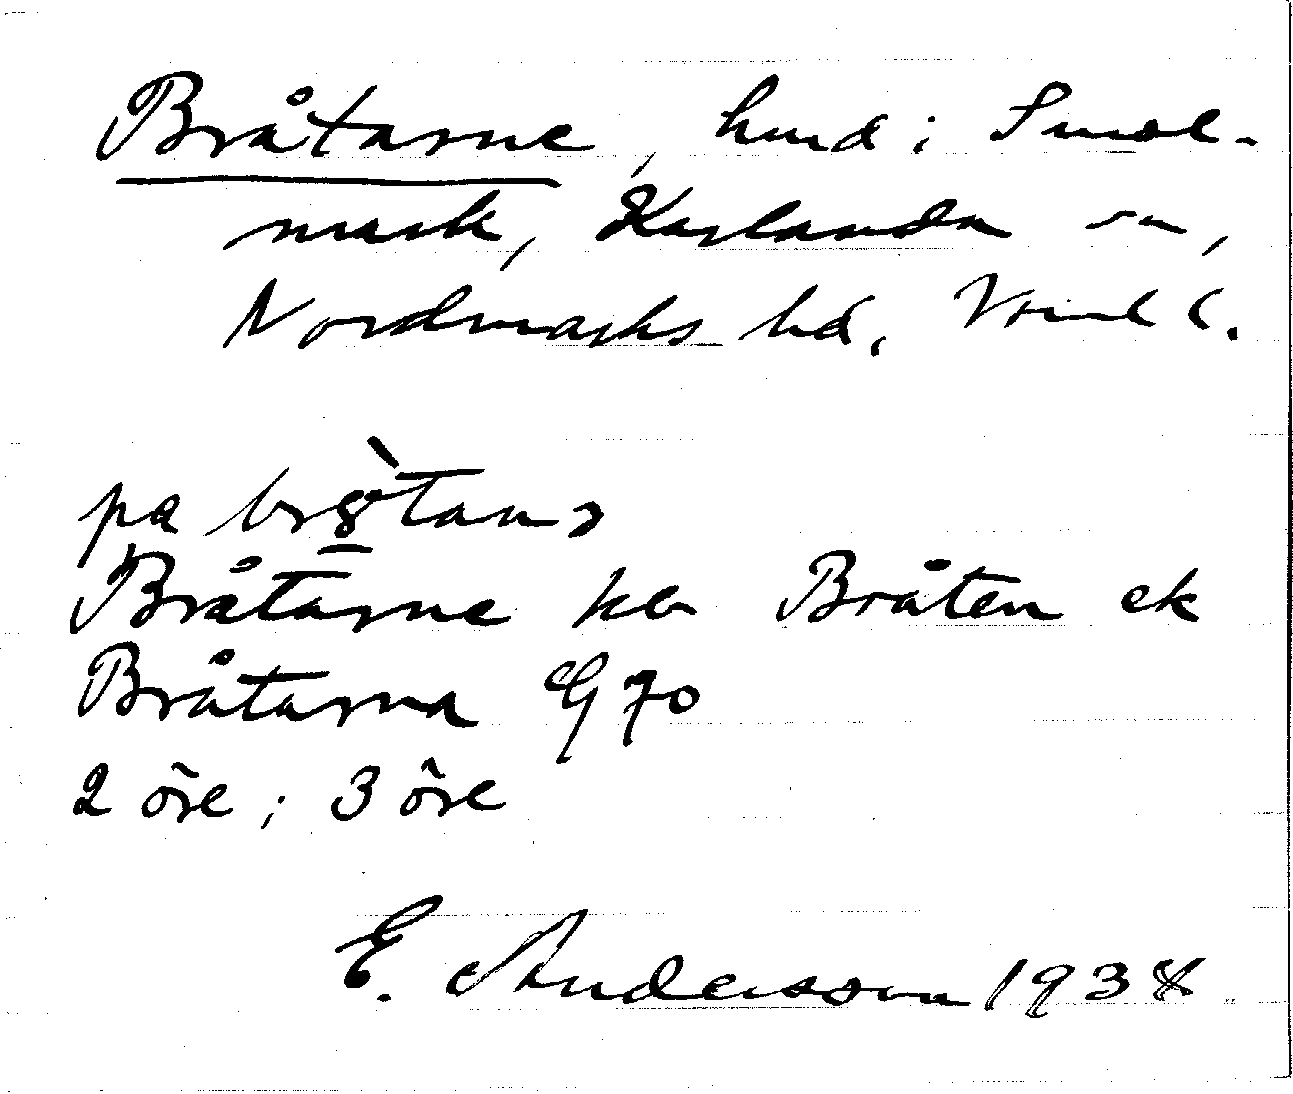 Bråtarne, hmd i Smol-
mark, Karlanda sn,
Nordmarks hd, Vrml l.
på br tan
Bråtarne ker Bråten ek
Bråtarna G 70
2 öre; 3 öre
E. Andersson 1938